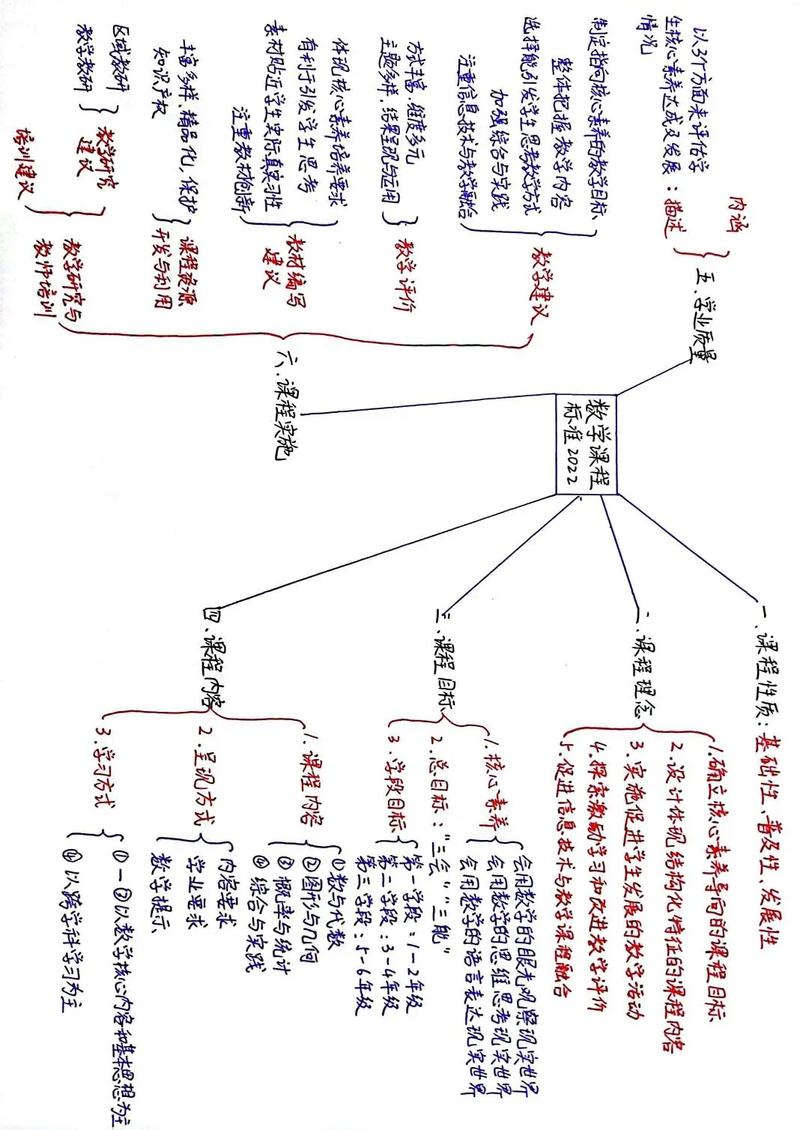 数学课程
标准2022
一.课程性质:基础性、普及性、发展性
二.课程理念
1.确立核心素养导向的课程目标
2.设计体现结构化特征的课程内容
3.实施促进学生发展的教学活动
4.探索激励学习和改进教学评价
5.促进信息技术与数学课程融合
三.课程目标
1.核心素养
会用数学的眼光观察现实世界
会用数学的思维思考现实世界
会用数学的语言表达现实世界
2.总目标:“三会”“三能”
3.学段目标
第一学段:1-2年级
第二学段:3-4年级
第三学段:5-6年级
四.课程内容
1.课程内容
①数与代数
②图形与几何
③概率与统计
④综合与实践
2.呈现方式
内容要求
学业要求
数学提示
3.学习方式
①-③以数学核心内容和基本思想为主
④以跨学科学习为主
五.学业质量
内涵
描述
以3个方面来评估学
生核心素养达成及发展:
情况
六.课程实施
教学建议
制定指向核心素养的教学目标
整体把握教学内容
选择能引发学生思考教学方式
加强综合与实践
注重信息技术与教学融合
教学评价
方式丰富、维度多元
主题多样、结果呈现与应用
教材编写
建议
体现核心素养培养要求
有利于引发学生思考
素材贴近学生实际真实习性
注重教材创新
课程资源
开发与利用
丰富多样、精品化,保护
知识产权
教学研究与
教师培训
教学研究
建议
区域教研
教学教研
培训建议